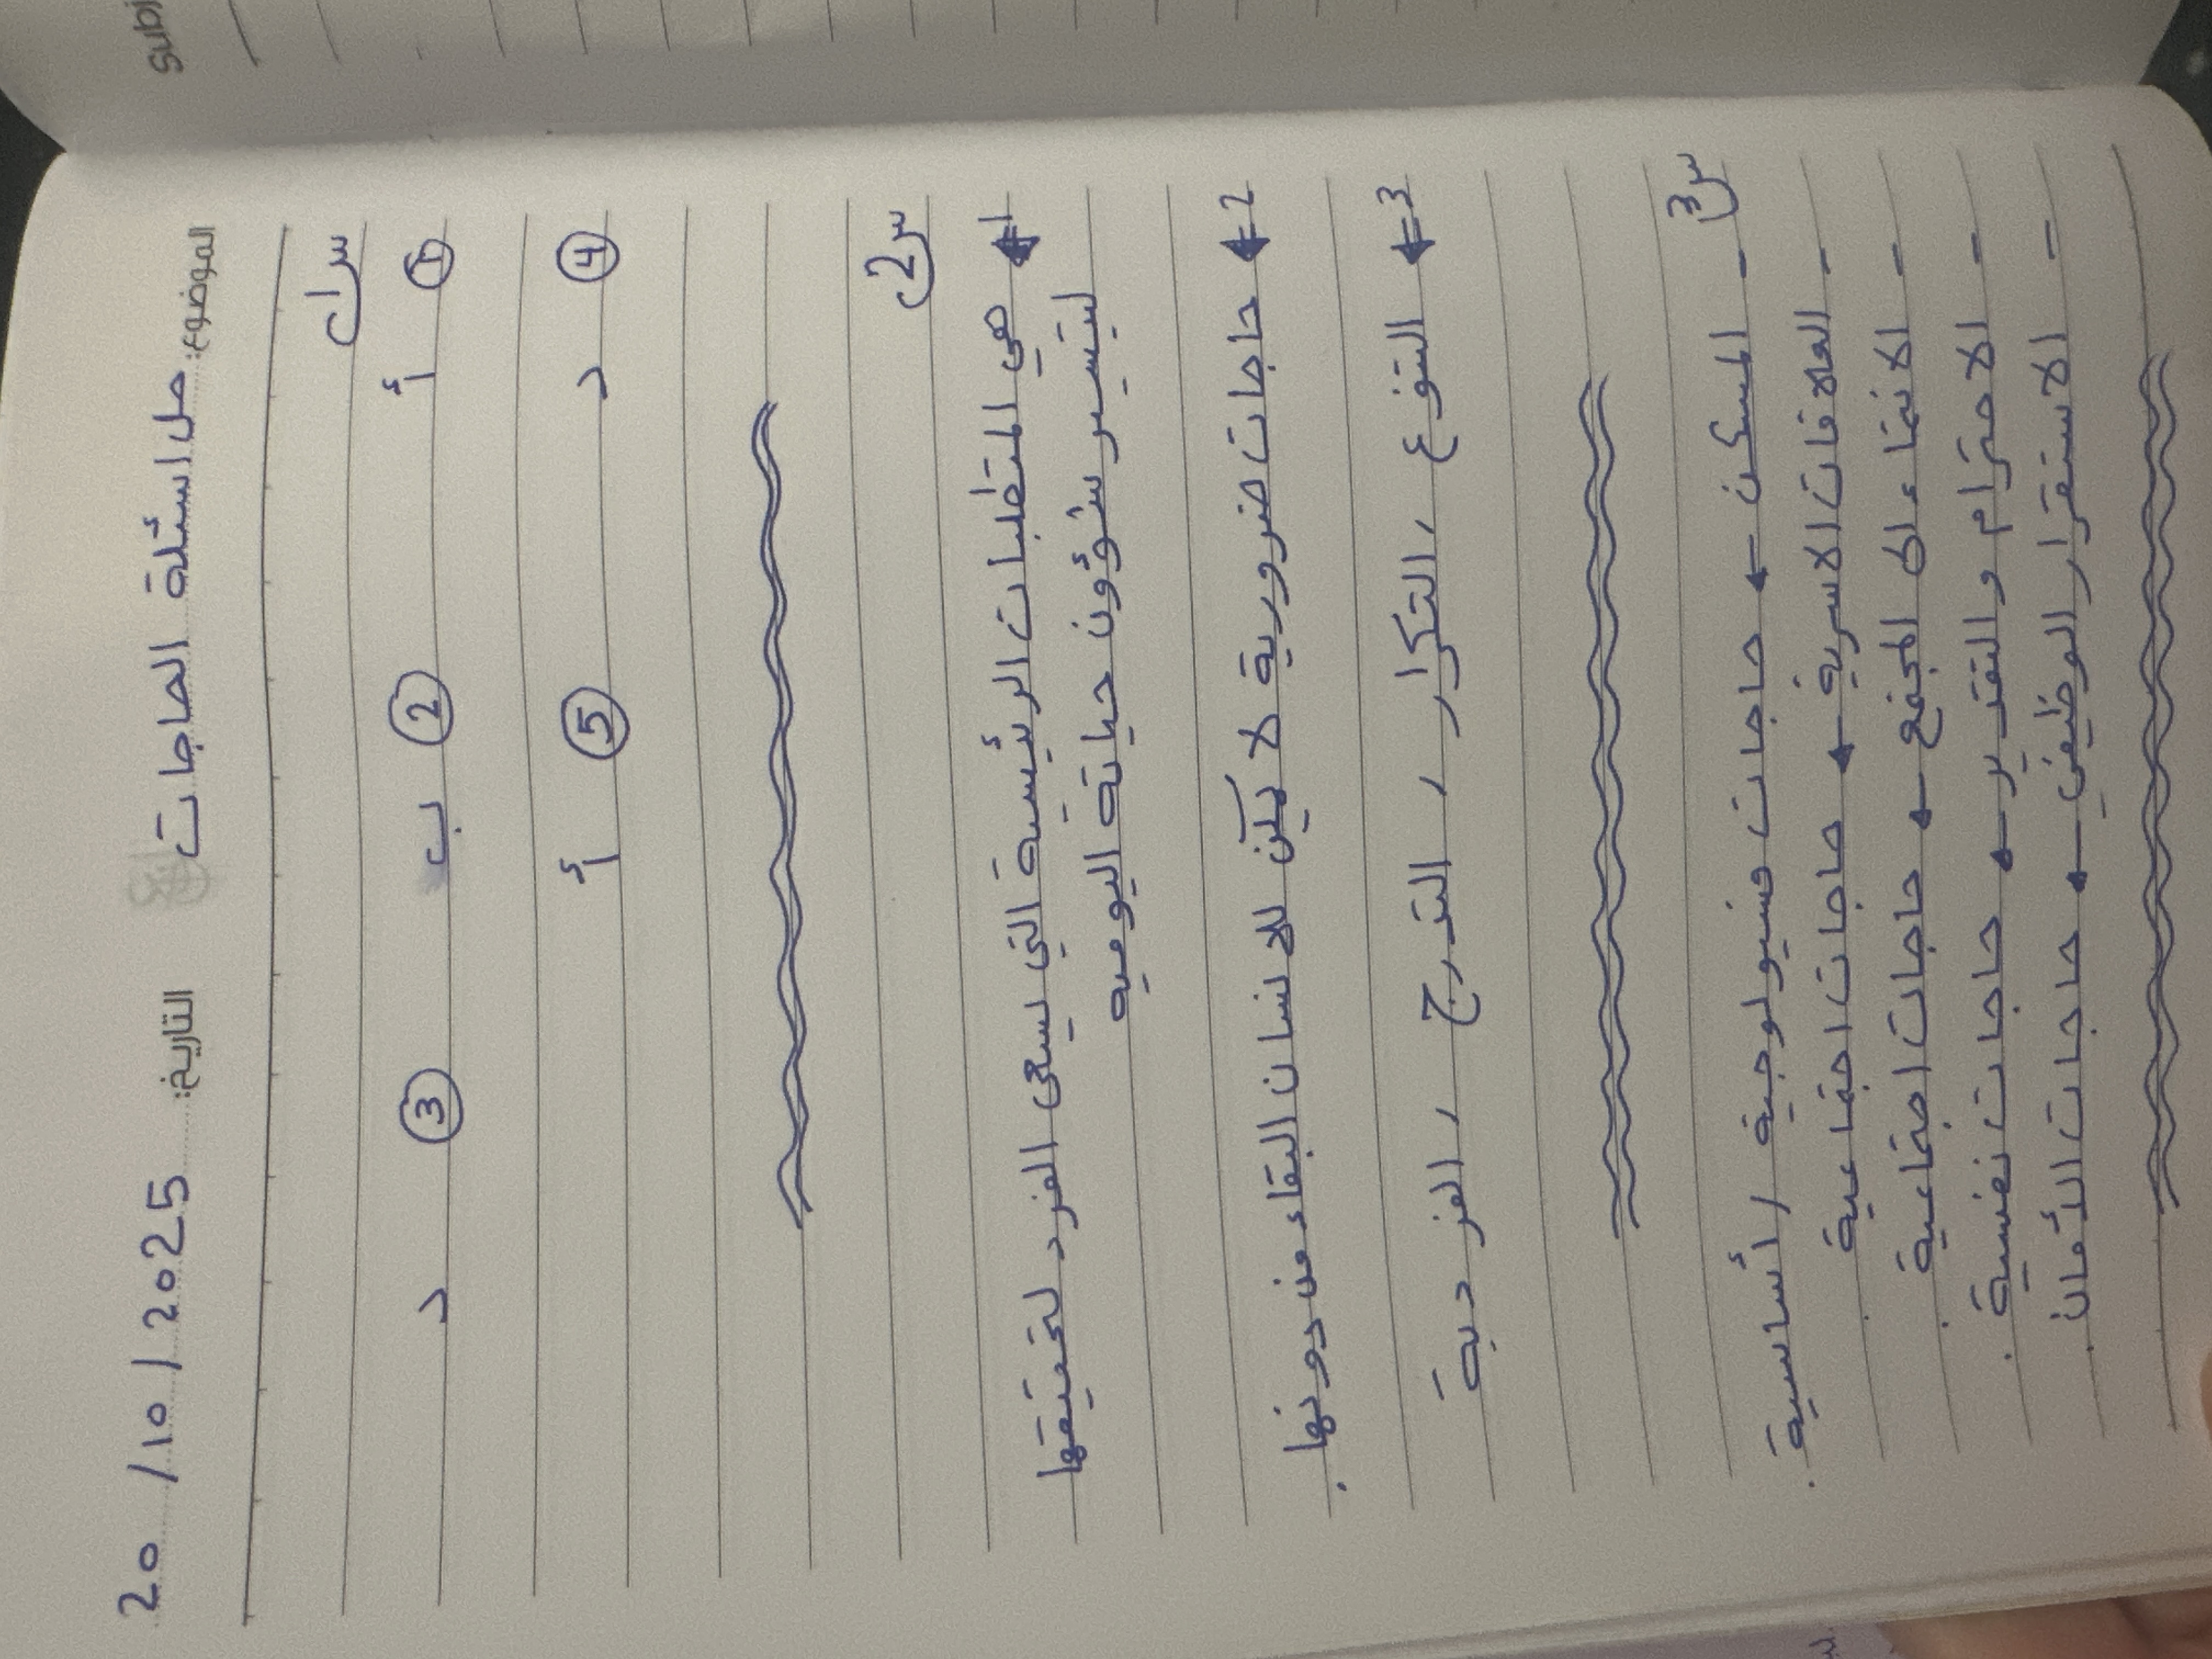 Subj
الموضوع: حل اسئلة الحاجات التاريخ: 20 / 10 / 2025
س1
① أ ② ب ③ د
④ د ⑤ أ
س2
1← هي المتطلبات الرئيسية التي يسعى الفرد لتحقيقها
ليتسير شؤون حياته اليوميه
2← حاجات ضرورية لا يمكن للانسان البقاء من دونها.
3← التنوع ، التكرار ، التدرج ، الفردية
س3
- المسكن ← حاجات فسيولوجية / أساسية.
- العلاقات الاسرية ← حاجات اجتماعية.
- الانتماء الى المجتمع ← حاجات اجتماعية.
- الاحترام و التقدير ← حاجات نفسية.
- الاستقرار الوظيفي ← حاجات الأمان.